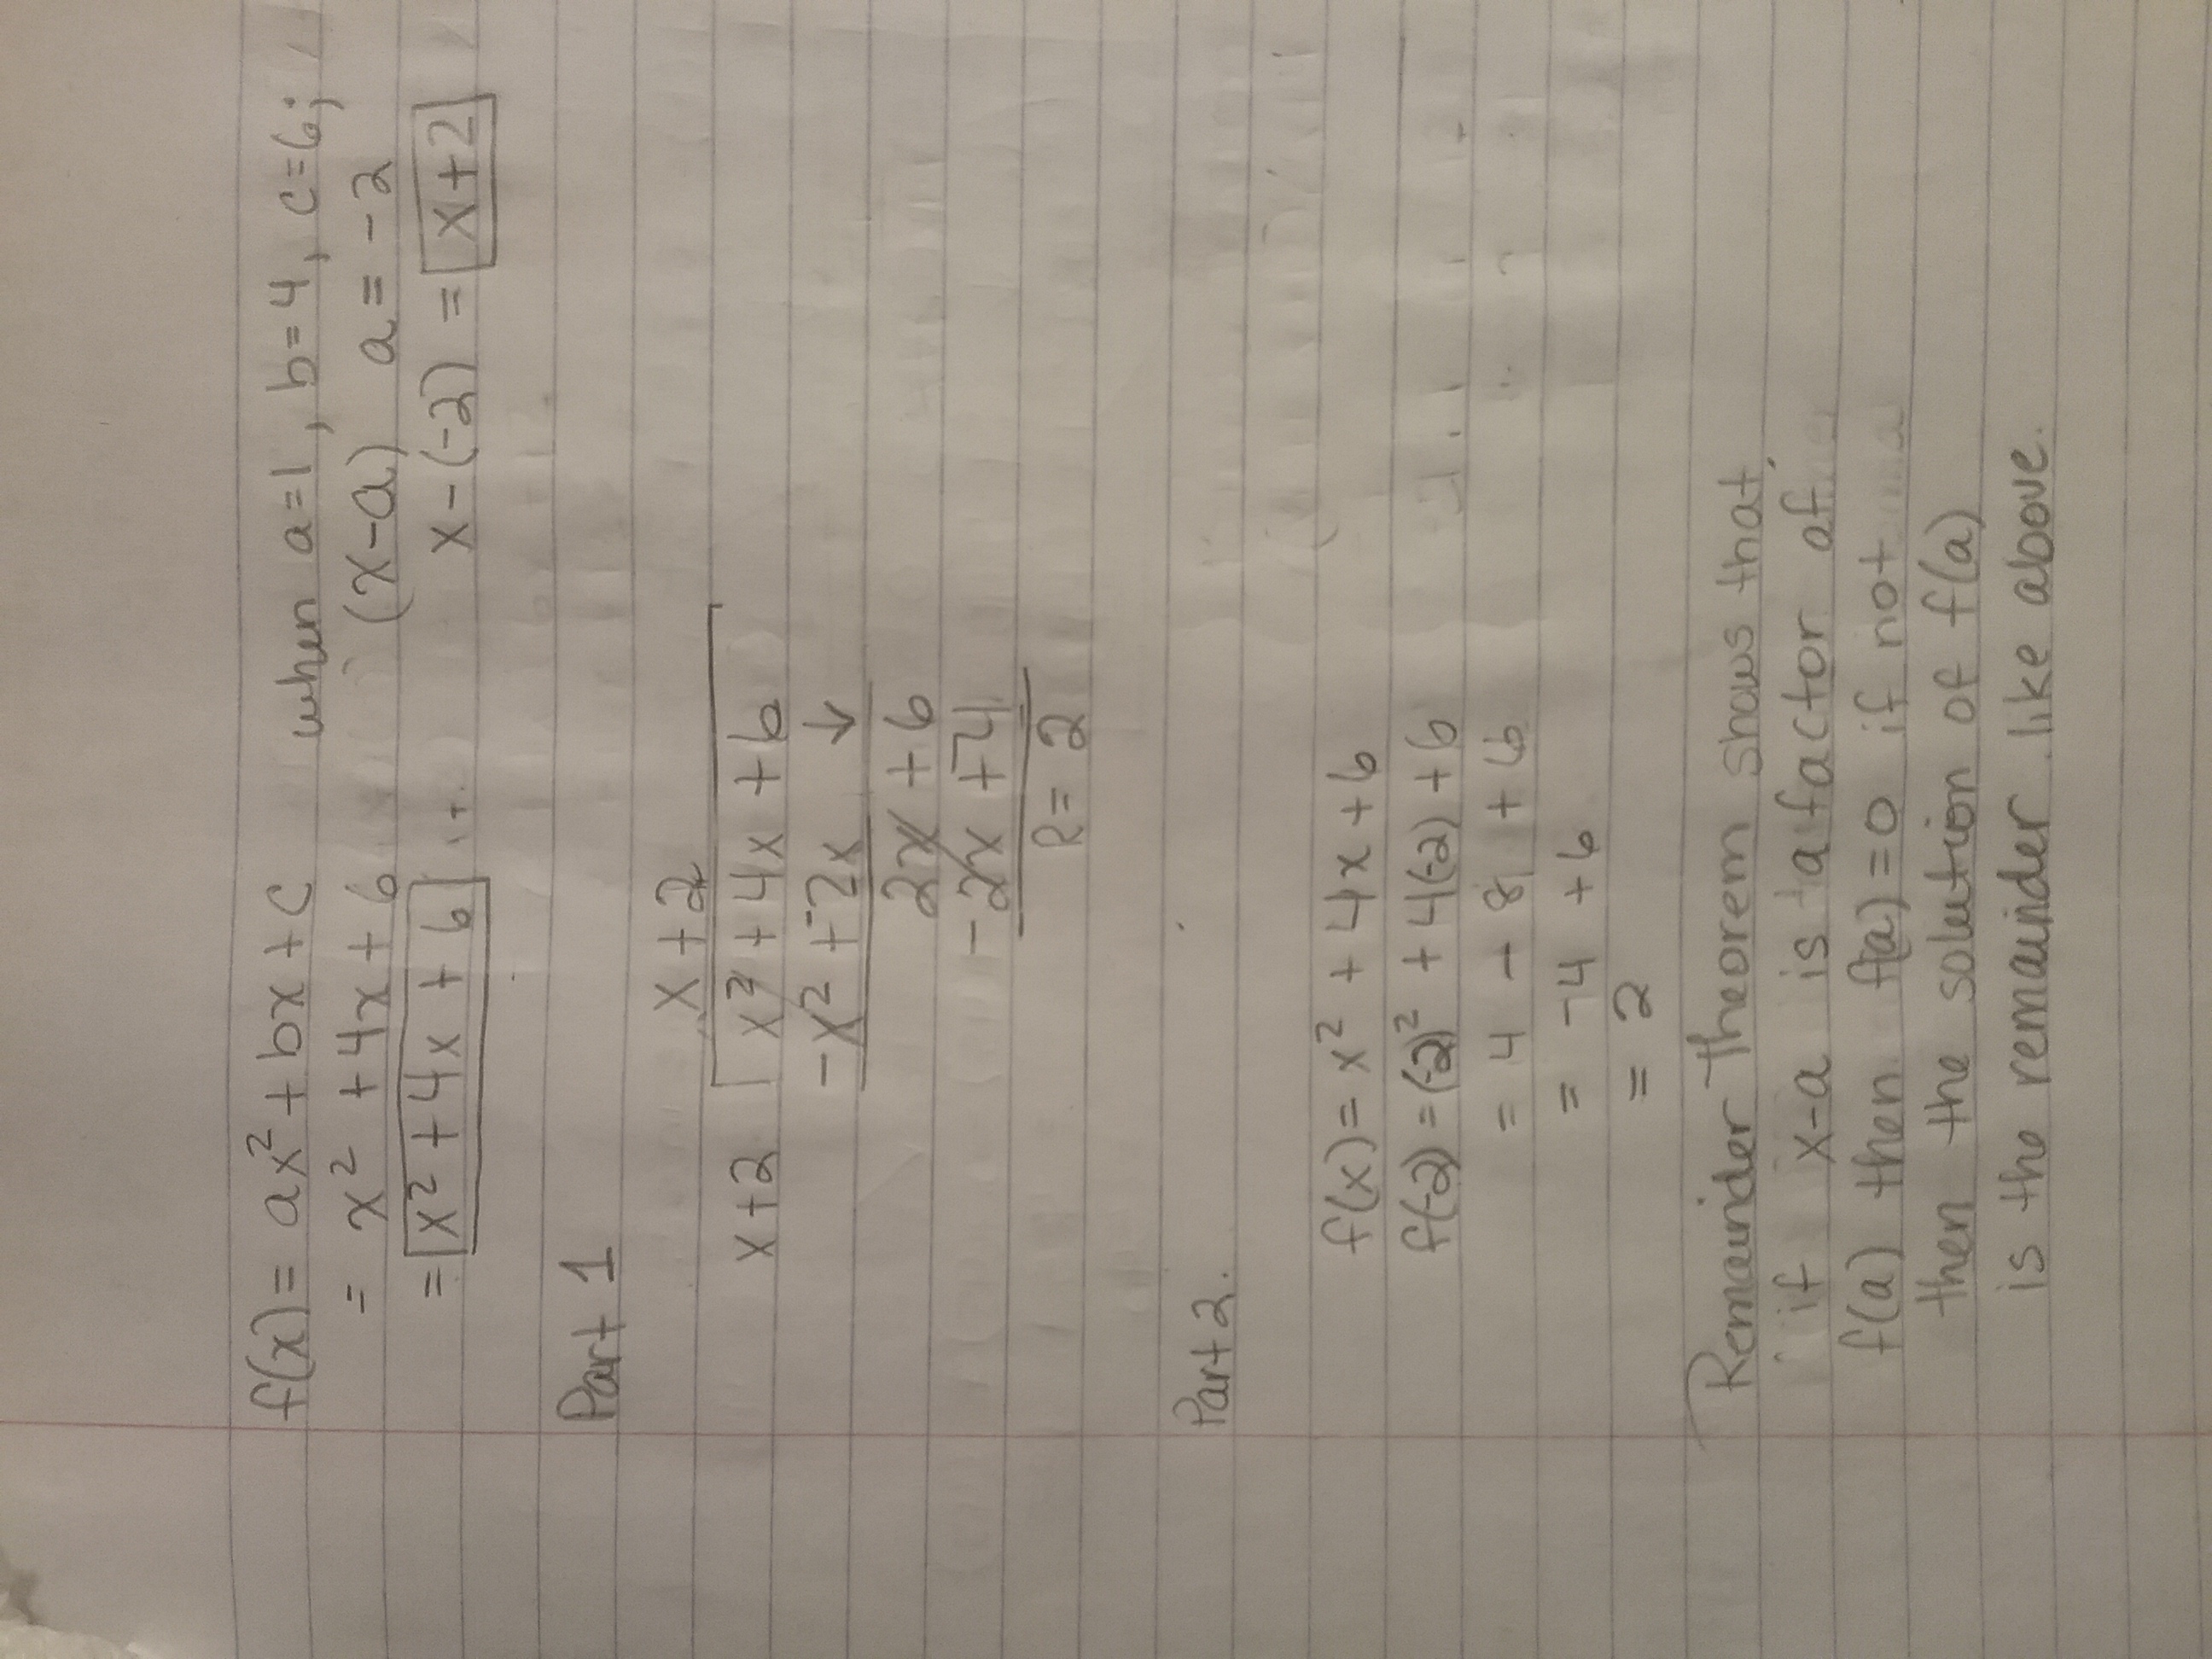 f(x) = ax² + bx + c when a=1, b=4, c=6;
= x² + 4x + 6 (x-a) a = -2
= x² + 4x + 6 x-(-2) = x+2
Part 1
x + 2
x+2 x² + 4x + 6
-x² + -2x ↓
2x + 6
-2x + -4
R = 2
Part 2.
f(x) = x² + 4x + 6
f(-2) = (-2)² + 4(-2) + 6
= 4 - 8 + 6
= -4 + 6
= 2
Remainder theorem shows that
if x-a is a factor of
f(a) then f(a)=0 if not
then the solution of f(a)
is the remainder like above.